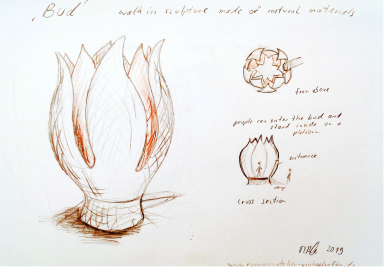 "Bud" walk in sculpture made of natural materials
from above
people can enter the bud and
stand inside on a
platform
entrance
ramp
cross section
2019